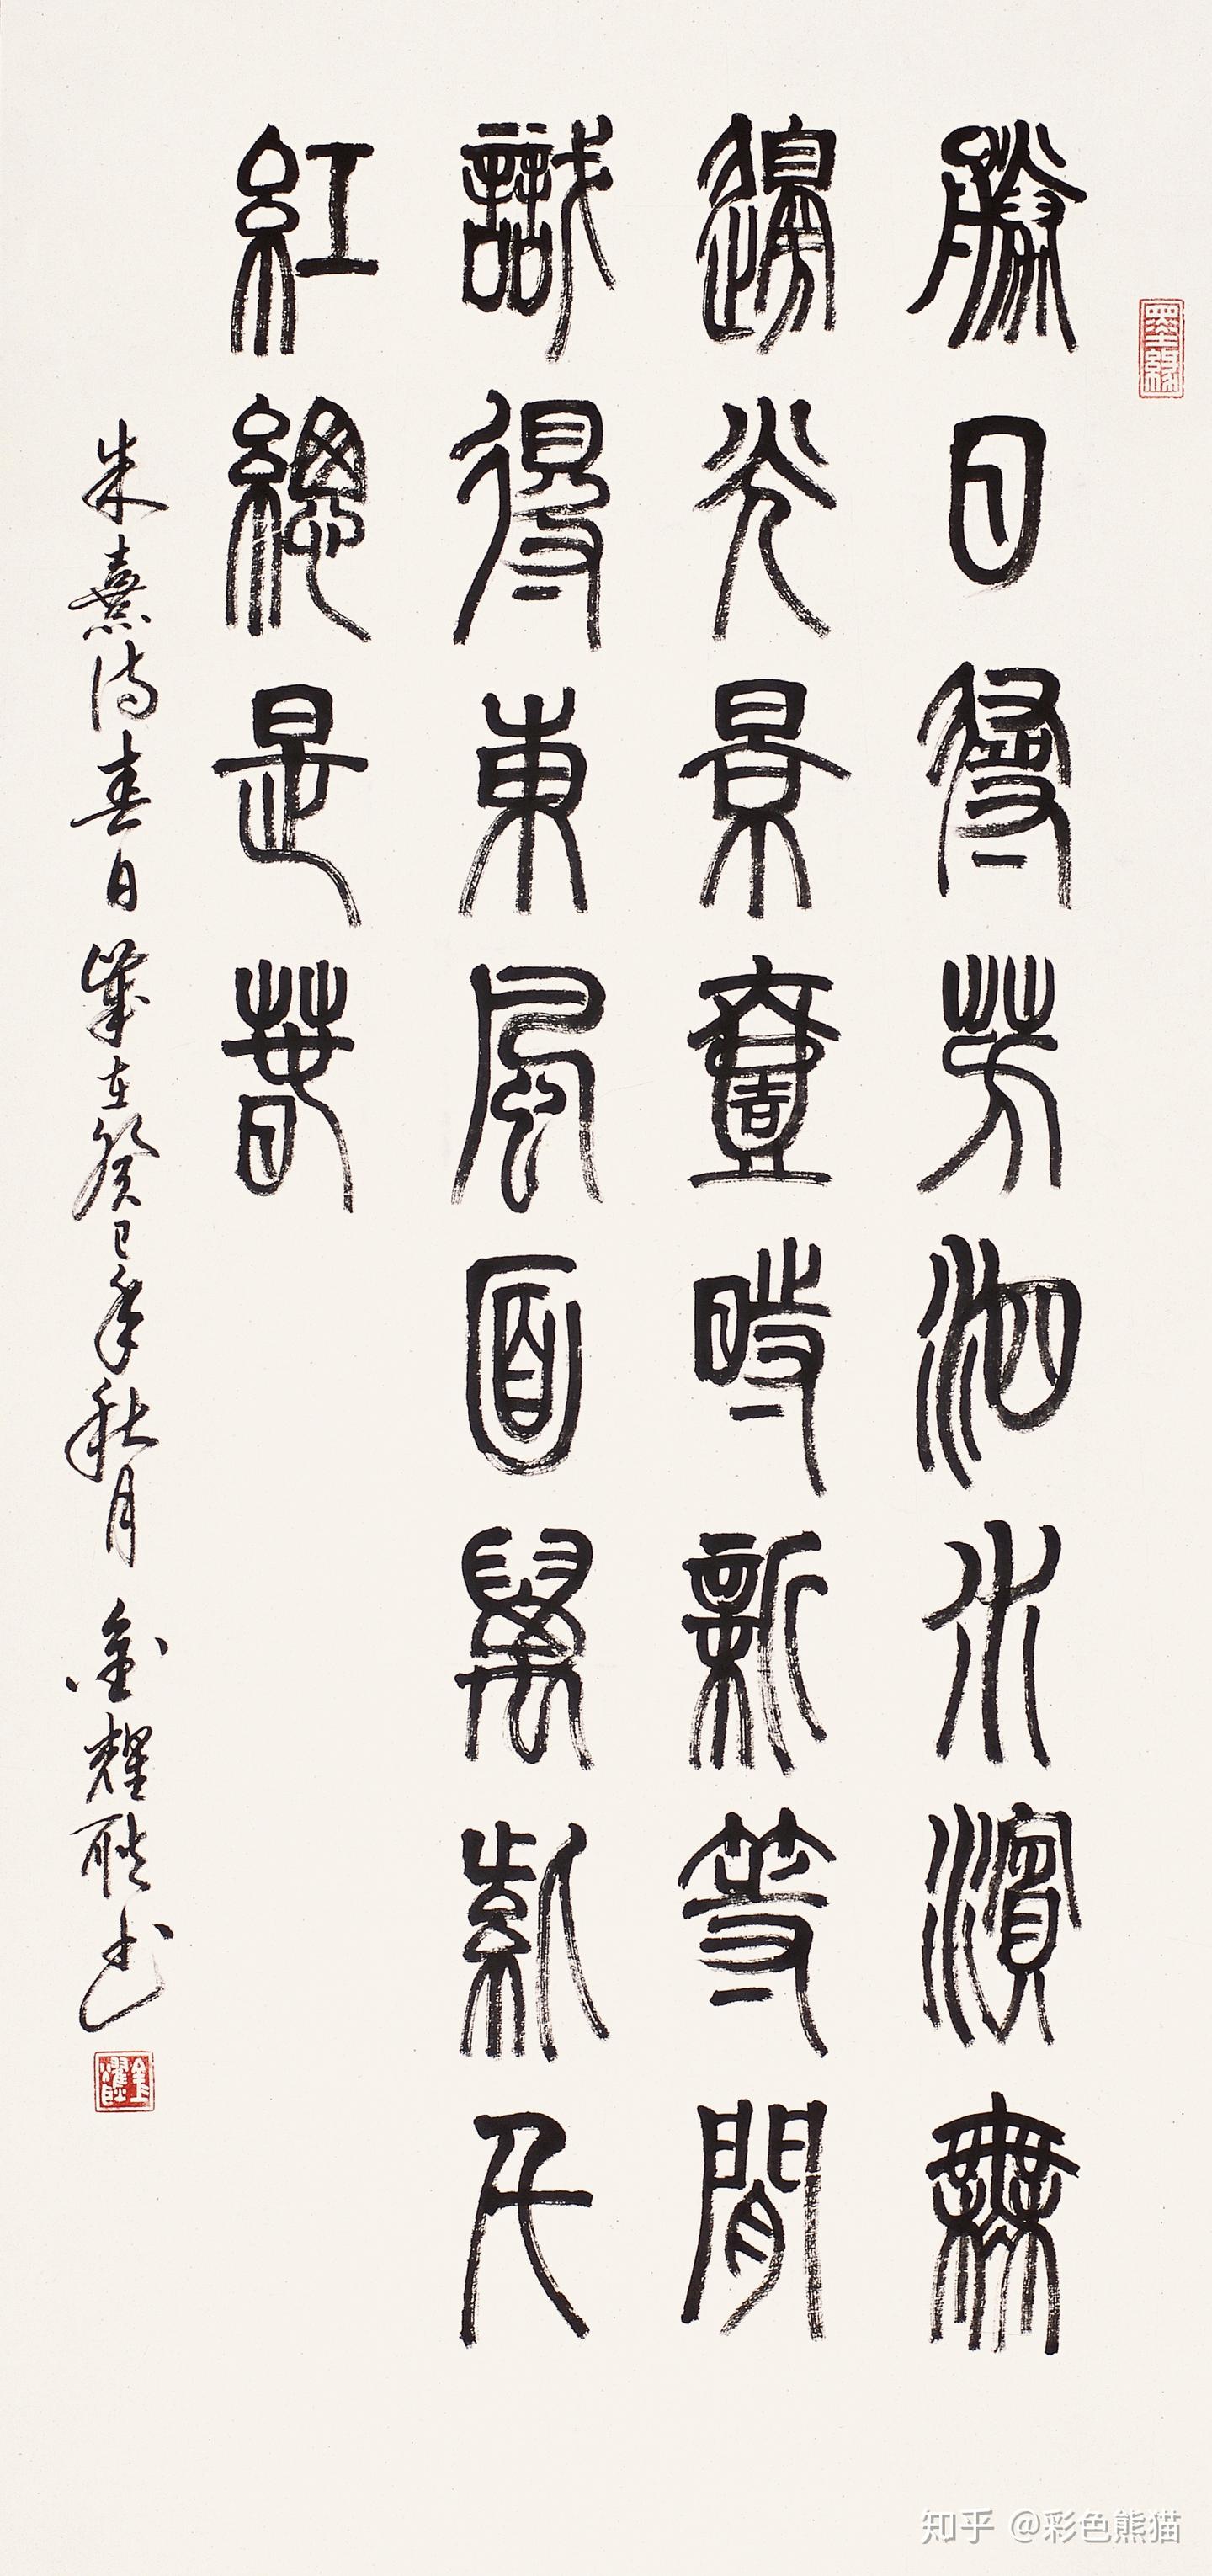 墨緣
勝日尋芳泗水濱無
邊光景壹時新等閒
識得東風面萬紫千
紅總是春
朱熹诗春日歲在癸巳年秋月金耀耿书
知乎 @彩色熊猫